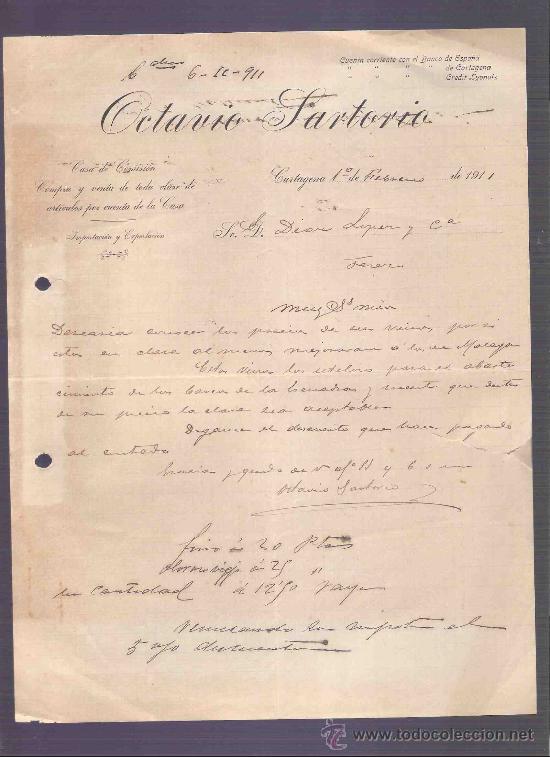 6-II-911
Cuenta corriente con el Banco de España
" " " " de Cartagena
" " " Credit Lyonais
Octavio Sartorio
Casa de Comisión
Compra y venta de toda clase de
artículos por cuenta de la Casa
Importación y Exportación
Cartagena 1º de Febrero de 1911
Sr. D. Diaz Lopez y Cª
Jerez
Muy Sr mio
Desearia conocer los precios de sus vinos, por si
estos en clase al menos mejoraran á los de Malaga
Estos vinos los para el abaste
cimiento de los barcos de la Escuadra y que dentro
de su precio la clase sea aceptable
Digame el descuento que hace pagando
al contado
Octavio Sartorio
fino á 20 Ptas
á 25 "
en cantidad á 12'50
el
5 % descuento
todocoleccion
www.todocoleccion.net